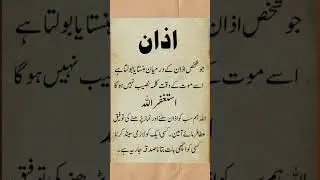 اذان
جو شخص اذان کے درمیان ہنستا یا بولتا ہے
اسے موت کے وقت کلمہ نصیب نہیں ہوگا
استغفراللہ
اللہ ہم سب کو اذان سننے اور نماز پڑھنے کی توفیق
عطا فرمائے آمین۔ کسی ایک کو لازمی سینڈ کرنا
کسی کو اچھی بات بتانا صدقہ جاریہ ہے۔